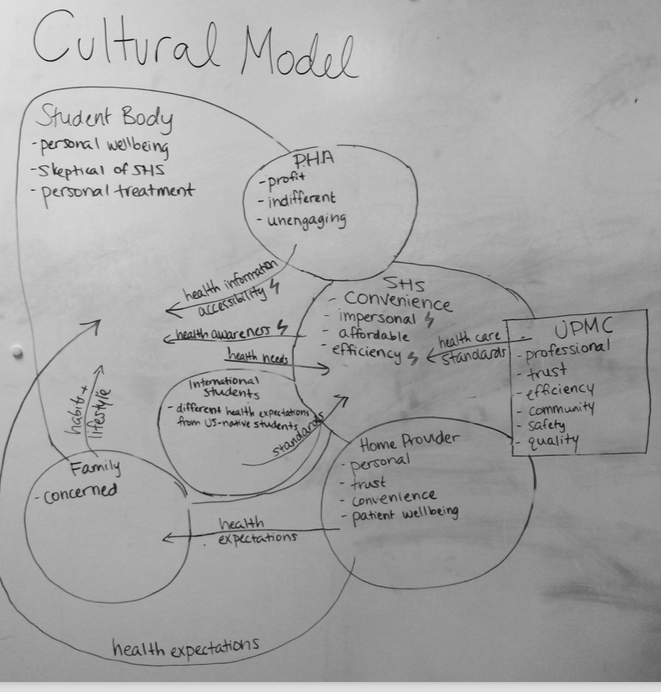 Cultural Model
Student Body
- personal wellbeing
- Skeptical of SHS
- personal treatment
PHA
- profit
- indifferent
- unengaging
health information
accessibility
SHS
- Convenience
- impersonal
- affordable
- efficiency
health awareness
health needs
health care
standards
UPMC
- professional
- trust
- efficiency
- community
- safety
- quality
International
students
- different health expectations
from US-native students
standards
habits +
lifestyle
Family
- concerned
Home Provider
- personal
- trust
- convenience
- patient wellbeing
health
expectations
health expectations